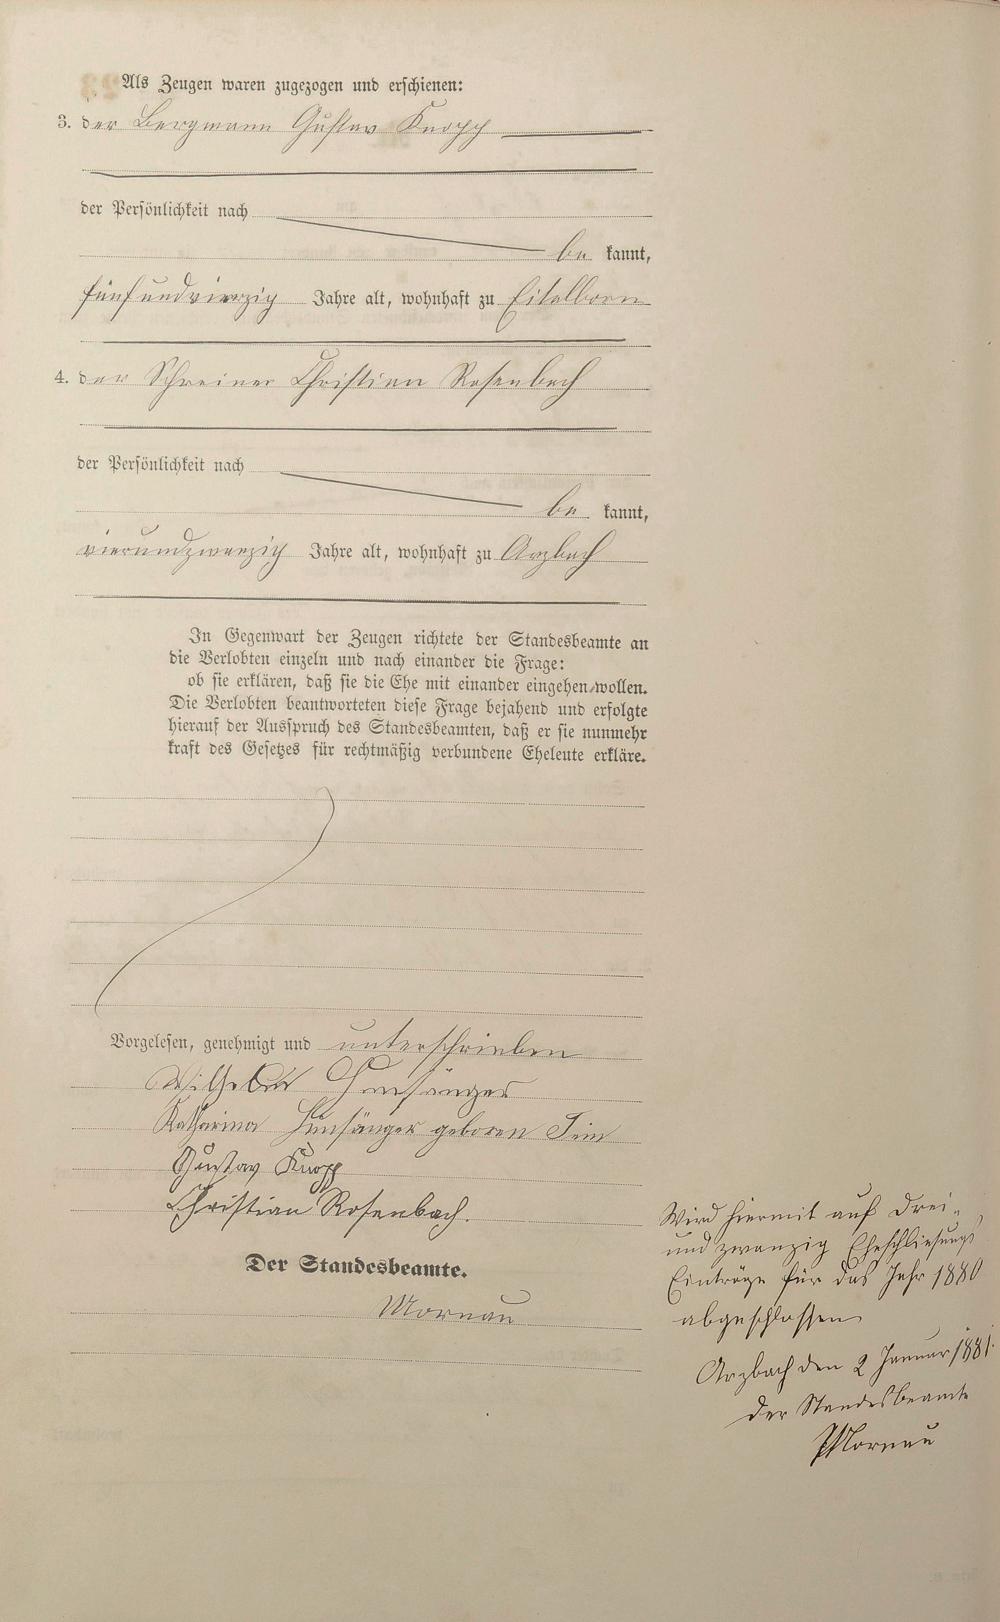 Als Zeugen waren zugezogen und erschienen:
3. der Bergmann Gustav Knopp
der Persönlichkeit nach
be kannt,
fünfundvierzig Jahre alt, wohnhaft zu Eitelborn
4. der Schreiner Christian Rosenbach
der Persönlichkeit nach
be kannt,
vierundzwanzig Jahre alt, wohnhaft zu Arzbach
In Gegenwart der Zeugen richtete der Standesbeamte an
die Verlobten einzeln und nach einander die Frage:
ob sie erklären, daß sie die Ehe mit einander eingehen wollen.
Die Verlobten beantworteten diese Frage bejahend und erfolgte
hierauf der Ausspruch des Standesbeamten, daß er sie nunmehr
kraft des Gesetzes für rechtmäßig verbundene Eheleute erkläre.
Vorgelesen, genehmigt und unterschrieben
Wilhelm Hümfänger
Katharina Hümfänger geboren
Gustav Knopp
Christian Rosenbach.
Der Standesbeamte.
Mornau
Wird hiermit auf Drei-
und zwanzig Eheschliesungs
Einträge für das Jahr 1880
abgeschlossen
Arzbach den 2 Januar 1881.
der Standesbeamte
Mornau